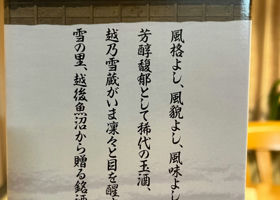 風格よし、風貌よし、風味よし
芳醇馥郁として稀代の玉酒、
越乃雪蔵がいま凛々と目を醒
雪の里、越後魚沼から贈る銘酒